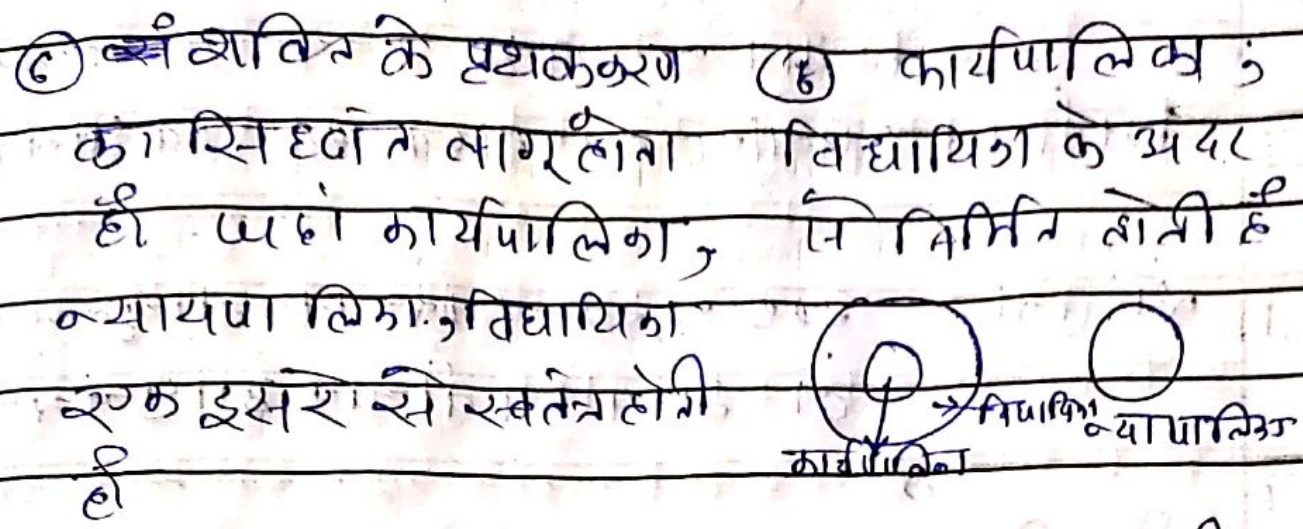 ⑥ शक्ति के पृथक्करण
का सिद्धांत लागू होता
है यहां कार्यपालिका,
न्यायपालिका, विधायिका
एक दूसरे से स्वतंत्र होती
है
⑥ कार्यपालिका ;
विधायिका के अंदर
से निर्मित होती है
विधायिका
न्यायपालिका
कार्यपालिका